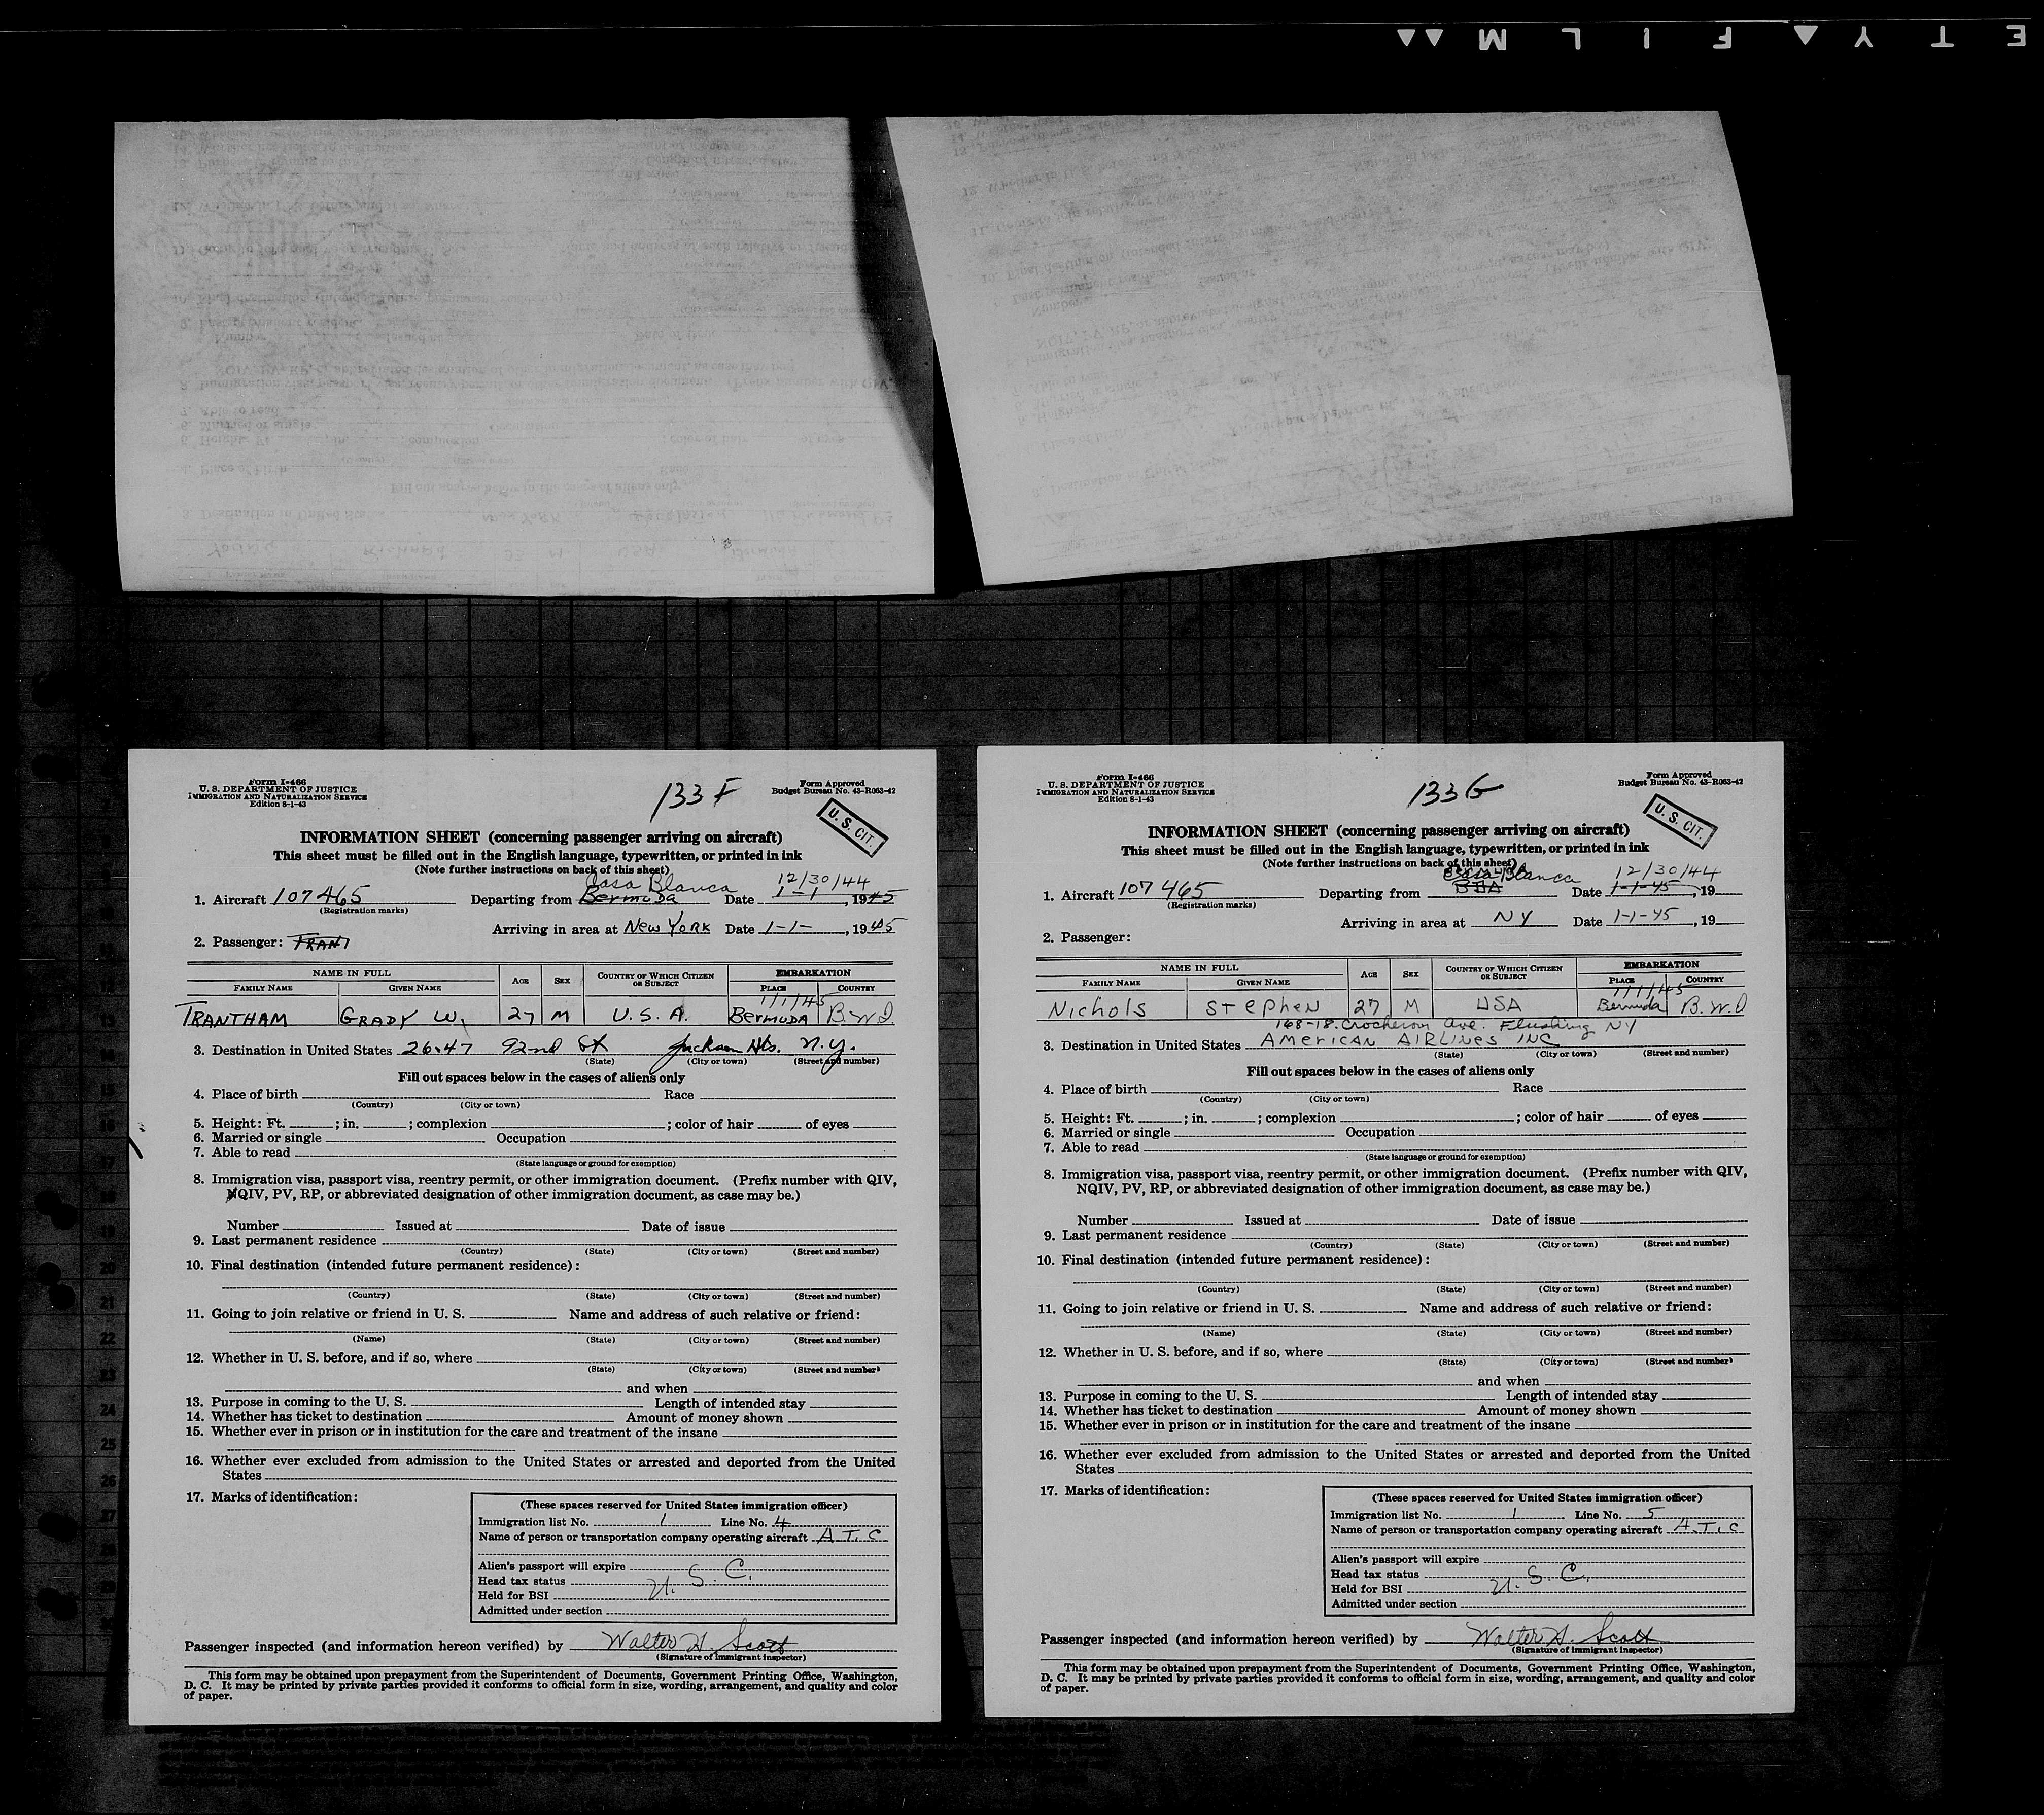 E T Y F I L M
Form I-466
U. S. DEPARTMENT OF JUSTICE
IMMIGRATION AND NATURALIZATION SERVICE
Edition 8-1-43
133 F
Form Approved
Budget Bureau No. 43-R063-42
U. S. CIT.
INFORMATION SHEET (concerning passenger arriving on aircraft)
This sheet must be filled out in the English language, typewritten, or printed in ink
(Note further instructions on back of this sheet)
Casa Blanca 12/30/44
1. Aircraft 107465 Departing from Bermuda Date 1-1, 1945
(Registration marks)
Arriving in area at NEW YORK Date 1-1-, 1945
2. Passenger: TRANT
NAME IN FULL AGE SEX COUNTRY OF WHICH CITIZEN OR SUBJECT EMBARKATION
FAMILY NAME GIVEN NAME PLACE COUNTRY
1/1/45
TRANTHAM GRADY W. 27 M U. S. A. BERMUDA B.W.I.
3. Destination in United States 26-47 92nd St Jackson Hts. N.y.
(State) (City or town) (Street and number)
Fill out spaces below in the cases of aliens only
4. Place of birth Race
(Country) (City or town)
5. Height: Ft. ; in. ; complexion ; color of hair of eyes
6. Married or single Occupation
7. Able to read
(State language or ground for exemption)
8. Immigration visa, passport visa, reentry permit, or other immigration document. (Prefix number with QIV,
NQIV, PV, RP, or abbreviated designation of other immigration document, as case may be.)
Number Issued at Date of issue
9. Last permanent residence
(Country) (State) (City or town) (Street and number)
10. Final destination (intended future permanent residence):
(Country) (State) (City or town) (Street and number)
11. Going to join relative or friend in U. S. Name and address of such relative or friend:
(Name) (State) (City or town) (Street and number)
12. Whether in U. S. before, and if so, where
(State) (City or town) (Street and number)
and when
13. Purpose in coming to the U. S. Length of intended stay
14. Whether has ticket to destination Amount of money shown
15. Whether ever in prison or in institution for the care and treatment of the insane
16. Whether ever excluded from admission to the United States or arrested and deported from the United
States
17. Marks of identification:
(These spaces reserved for United States immigration officer)
Immigration list No. 1 Line No. 4
Name of person or transportation company operating aircraft A. T. C
Alien's passport will expire
Head tax status U. S. C.
Held for BSI
Admitted under section
Passenger inspected (and information hereon verified) by Walter H. Scott
(Signature of immigrant inspector)
This form may be obtained upon prepayment from the Superintendent of Documents, Government Printing Office, Washington,
D. C. It may be printed by private parties provided it conforms to official form in size, wording, arrangement, and quality and color
of paper.
Form I-466
U. S. DEPARTMENT OF JUSTICE
IMMIGRATION AND NATURALIZATION SERVICE
Edition 8-1-43
133 G
Form Approved
Budget Bureau No. 43-R063-42
U. S. CIT.
INFORMATION SHEET (concerning passenger arriving on aircraft)
This sheet must be filled out in the English language, typewritten, or printed in ink
(Note further instructions on back of this sheet)
Casa Blanca 12/30/44
1. Aircraft 107465 Departing from BDA Date 1-1-45, 19
(Registration marks)
Arriving in area at NY Date 1-1-45, 19
2. Passenger:
NAME IN FULL AGE SEX COUNTRY OF WHICH CITIZEN OR SUBJECT EMBARKATION
FAMILY NAME GIVEN NAME PLACE COUNTRY
1/1/45
Nichols Stephen 27 M USA Bermuda B.W.I
168-18 Crocheron Ave. Flushing NY
3. Destination in United States AMERICAN AIRLINES INC
(State) (City or town) (Street and number)
Fill out spaces below in the cases of aliens only
4. Place of birth Race
(Country) (City or town)
5. Height: Ft. ; in. ; complexion ; color of hair of eyes
6. Married or single Occupation
7. Able to read
(State language or ground for exemption)
8. Immigration visa, passport visa, reentry permit, or other immigration document. (Prefix number with QIV,
NQIV, PV, RP, or abbreviated designation of other immigration document, as case may be.)
Number Issued at Date of issue
9. Last permanent residence
(Country) (State) (City or town) (Street and number)
10. Final destination (intended future permanent residence):
(Country) (State) (City or town) (Street and number)
11. Going to join relative or friend in U. S. Name and address of such relative or friend:
(Name) (State) (City or town) (Street and number)
12. Whether in U. S. before, and if so, where
(State) (City or town) (Street and number)
and when
13. Purpose in coming to the U. S. Length of intended stay
14. Whether has ticket to destination Amount of money shown
15. Whether ever in prison or in institution for the care and treatment of the insane
16. Whether ever excluded from admission to the United States or arrested and deported from the United
States
17. Marks of identification:
(These spaces reserved for United States immigration officer)
Immigration list No. 1 Line No. 5
Name of person or transportation company operating aircraft A. T. C
Alien's passport will expire
Head tax status U. S. C.
Held for BSI
Admitted under section
Passenger inspected (and information hereon verified) by Walter H. Scott
(Signature of immigrant inspector)
This form may be obtained upon prepayment from the Superintendent of Documents, Government Printing Office, Washington,
D. C. It may be printed by private parties provided it conforms to official form in size, wording, arrangement, and quality and color
of paper.